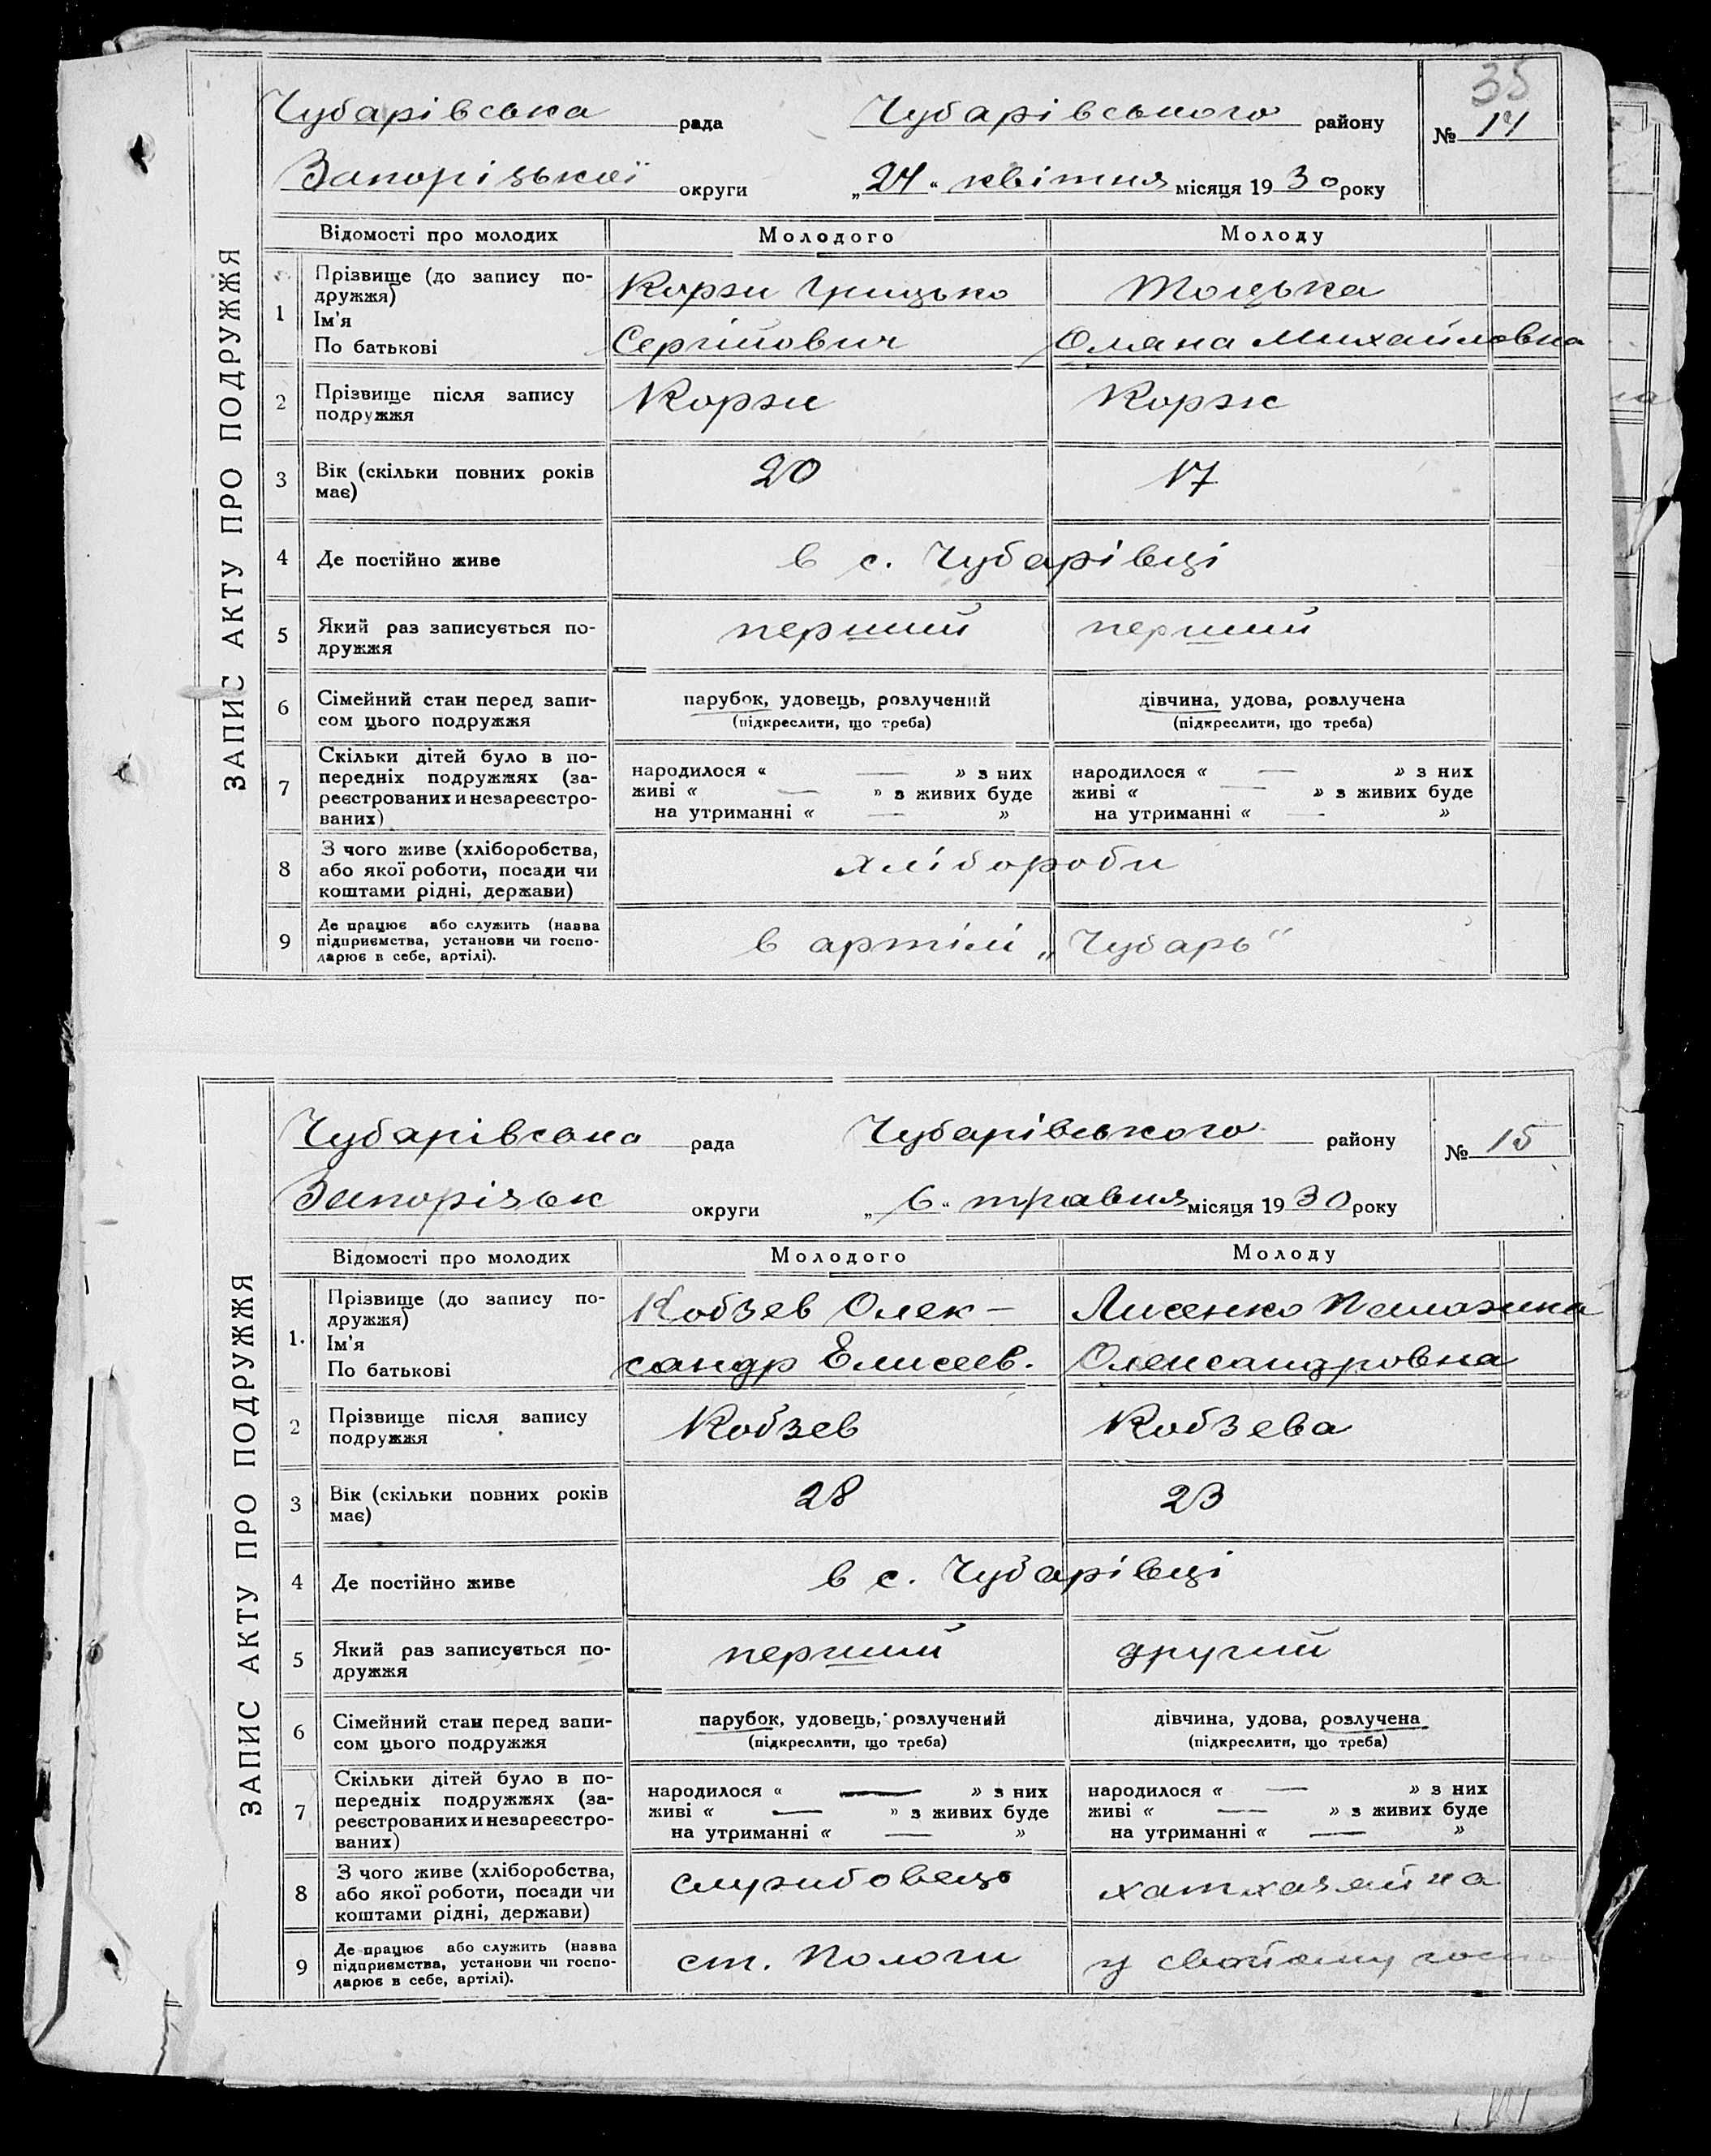 35
Чубарівська рада Чубарівського району № 14
Запорізької округи „24“ квітня місяця 1930 року
ЗАПИС АКТУ ПРО ПОДРУЖЖЯ
Відомості про молодих Молодого Молоду
1 Прізвище (до запису подружжя) Корж Грицько Тоцька
Ім'я
По батькові Сергійович Оляна Михайловна
2 Прізвище після запису подружжя Корж Корж
3 Вік (скільки повних років має) 20 17
4 Де постійно живе в с. Чубарівці
5 Який раз записується подружжя перший перший
6 Сімейний стан перед записом цього подружжя парубок, удовець, розлучений дівчина, удова, розлучена
(підкреслити, що треба) (підкреслити, що треба)
7 Скільки дітей було в попередніх подружжях (зареєстрованих и незареєстрованих)
народилося « — » з них народилося « — » з них
живі « — » з живих буде живі « — » з живих буде
на утриманні « — » на утриманні « — »
8 З чого живе (хліборобства, або якої роботи, посади чи коштами рідні, держави) хлібороби
9 Де працює або служить (назва підприємства, установи чи господарює в себе, артілі). в артілі „Чубарь“
Чубарівська рада Чубарівського району № 15
Запорізьк округи „6“ травня місяця 1930 року
ЗАПИС АКТУ ПРО ПОДРУЖЖЯ
Відомості про молодих Молодого Молоду
1. Прізвище (до запису подружжя) Кобзев Олек- Лисенко
Ім'я
По батькові сандр Елисеев. Олександровна
2 Прізвище після запису подружжя Кобзев Кобзева
3 Вік (скільки повних років має) 28 23
4 Де постійно живе в с. Чубарівці
5 Який раз записується подружжя перший другий
6 Сімейний стан перед записом цього подружжя парубок, удовець, розлучений дівчина, удова, розлучена
(підкреслити, що треба) (підкреслити, що треба)
7 Скільки дітей було в попередніх подружжях (зареєстрованих и незареєстрованих)
народилося « — » з них народилося « — » з них
живі « — » з живих буде живі « — » з живих буде
на утриманні « — » на утриманні « — »
8 З чого живе (хліборобства, або якої роботи, посади чи коштами рідні, держави) службовець хатхазяйка
9 Де працює або служить (назва підприємства, установи чи господарює в себе, артілі). ст. Пологи у свойому госпо